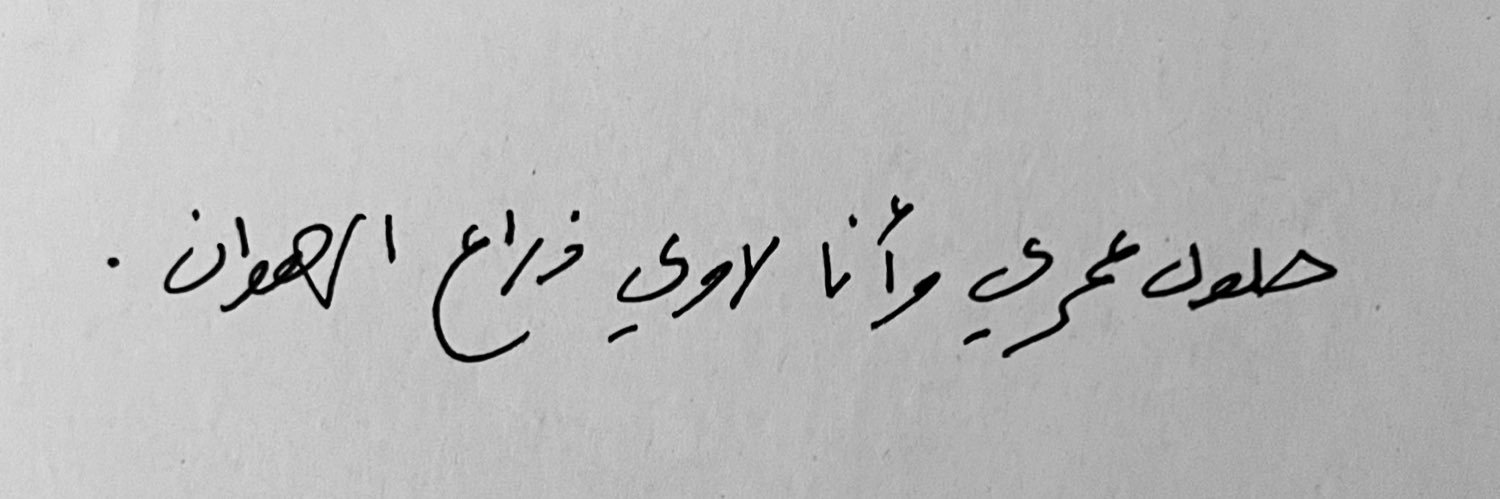 طول عمري وأنا لاوي ذراع الهوان .